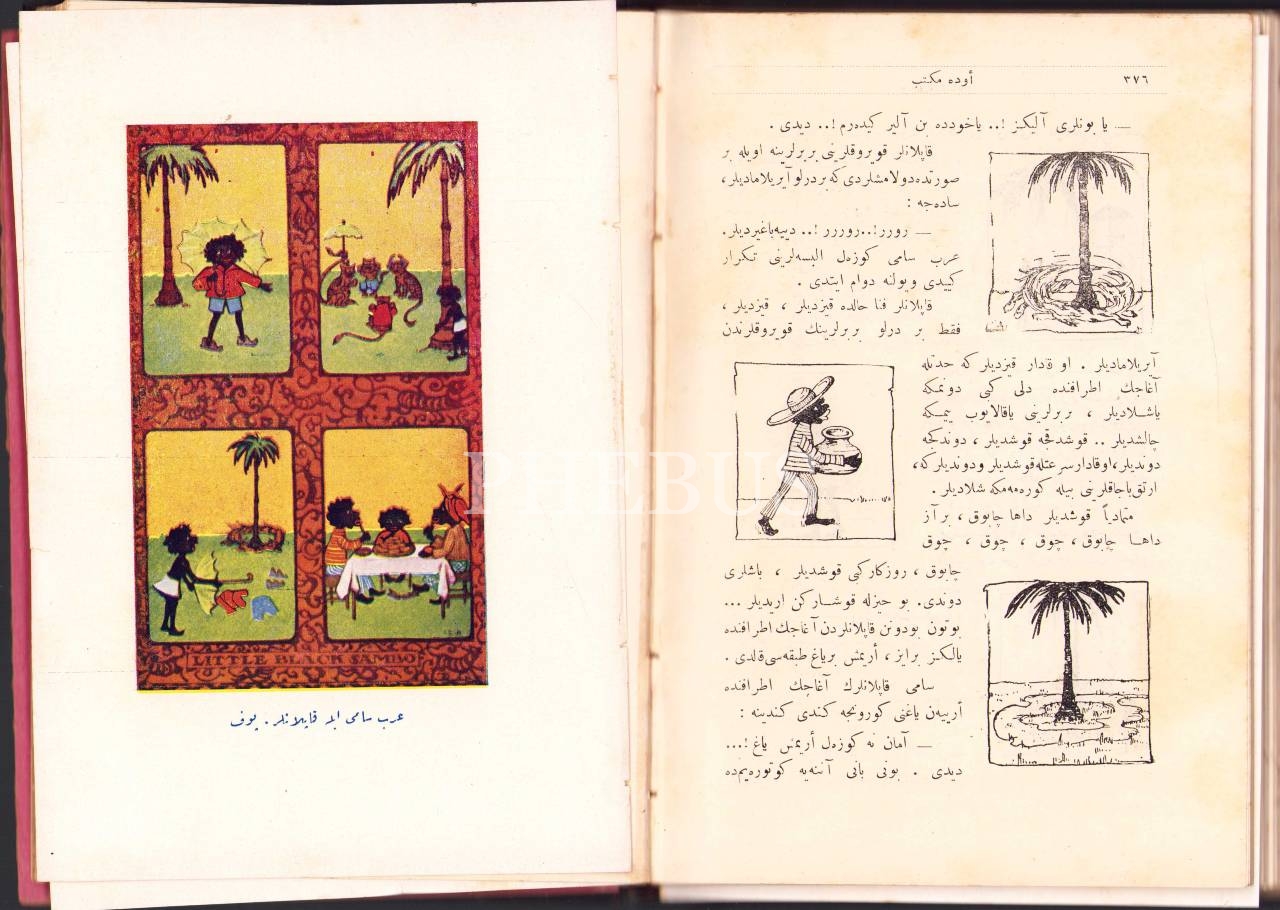 LITTLE BLACK SAMBO
عرب سامی ایله قاپلانلر . یوف
PHEBUS
٣٧٦
أوده مکتب
— یا بونلری آلیکز !.. یاخودده بن آلیر کیده‌رم !.. دیدی .
قاپلانلر قویروقلرینی بربرلرینه اویله بر
صورتده دولامشلردی که بر درلو آیریلامادیلر ،
ساده‌جه :
— رورر!..روررر !.. دییه باغیردیلر.
عرب سامی کوزه‌ل البسه‌لرینی تکرار
کییدی و یولنه دوام ایتدی .
قاپلانلر فنا حالده قیزدیلر ، قیزدیلر ،
فقط بر درلو بربرلرینك قویروقلرندن
آیریلامادیلر . او قادار قیزدیلر که حدتله
آغاجك اطرافنده دلی کبی دونمکه
باشلادیلر ، بربرلرینی یاقالایوب ییمکه
چالشدیلر .. قوشدقجه قوشدیلر ، دوندکجه
دوندیلر، اوقادار سرعتله قوشدیلر و دوندیلر که،
ارتق باجاقلرنی بیله کوره‌مه‌مکه باشلادیلر.
متمادیاً قوشدیلر داها چابوق ، بر آز
داها چابوق ، چوق ، چوق ، چوق
چابوق ، روزکار کبی قوشدیلر ، باشلری
دوندی. بو حیزله قوشارکن اریدیلر ...
بوتون بوتون قاپلانلردن آغاجك اطرافنده
یالکز برایز ، أریمش بر یاغ طبقه‌سی قالدی .
سامی قاپلانلرك آغاجك اطرافنده
أرییه‌ن یاغنی کورونجه کندی کندینه :
— آمان نه کوزه‌ل أریمش یاغ !...
دیدی . بونی بانی آننه‌یه کوتوره‌یم‌ده